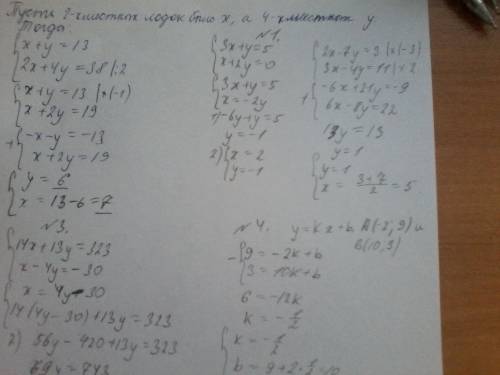 Пусть 2-хместных лодок было x, а 4-хместных y.
Тогда:
x+y=13
2x+4y=38 |:2
x+y=13 |×(-1)
x+2y=19
+ -x-y=-13
x+2y=19
y=6
x=13-6=7
№1.
3x+y=5
x+2y=0
3x+y=5
x=-2y
1) -6y+y=5
y=-1
2) x=2
y=-1
2x-7y=3 |×(-3)
3x-4y=11 |×2
+ -6x+21y=-9
6x-8y=22
13y=13
y=1
y=1
x=(3+7)/2=5
№3.
14x+13y=323
x-4y=-30
x=4y-30
14(4y-30)+13y=323
2) 56y-420+13y=323
69y=743
№4. y=kx+b. A(-2;9) и
B(10;3)
- 9=-2k+b
3=10k+b
6=-12k
k=-1/2
k=-1/2